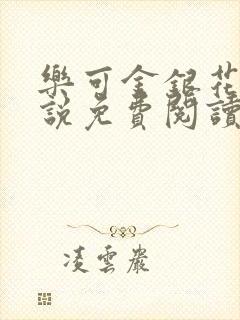 樂可金銀花
說免費閱讀
凌雲巖